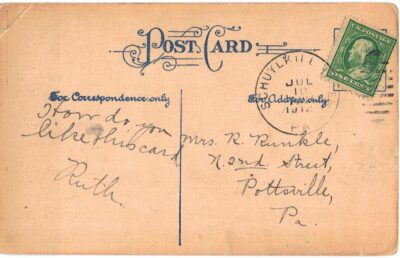 POST CARD
For Correspondence only
For Address only
SCHUYLKILL
JUL
10
1912
PA.
U.S. POSTAGE
ONE CENT
How do you
like this card
Ruth.
Mrs. R. Runkle,
N 2nd Street,
Pottsville,
Pa.